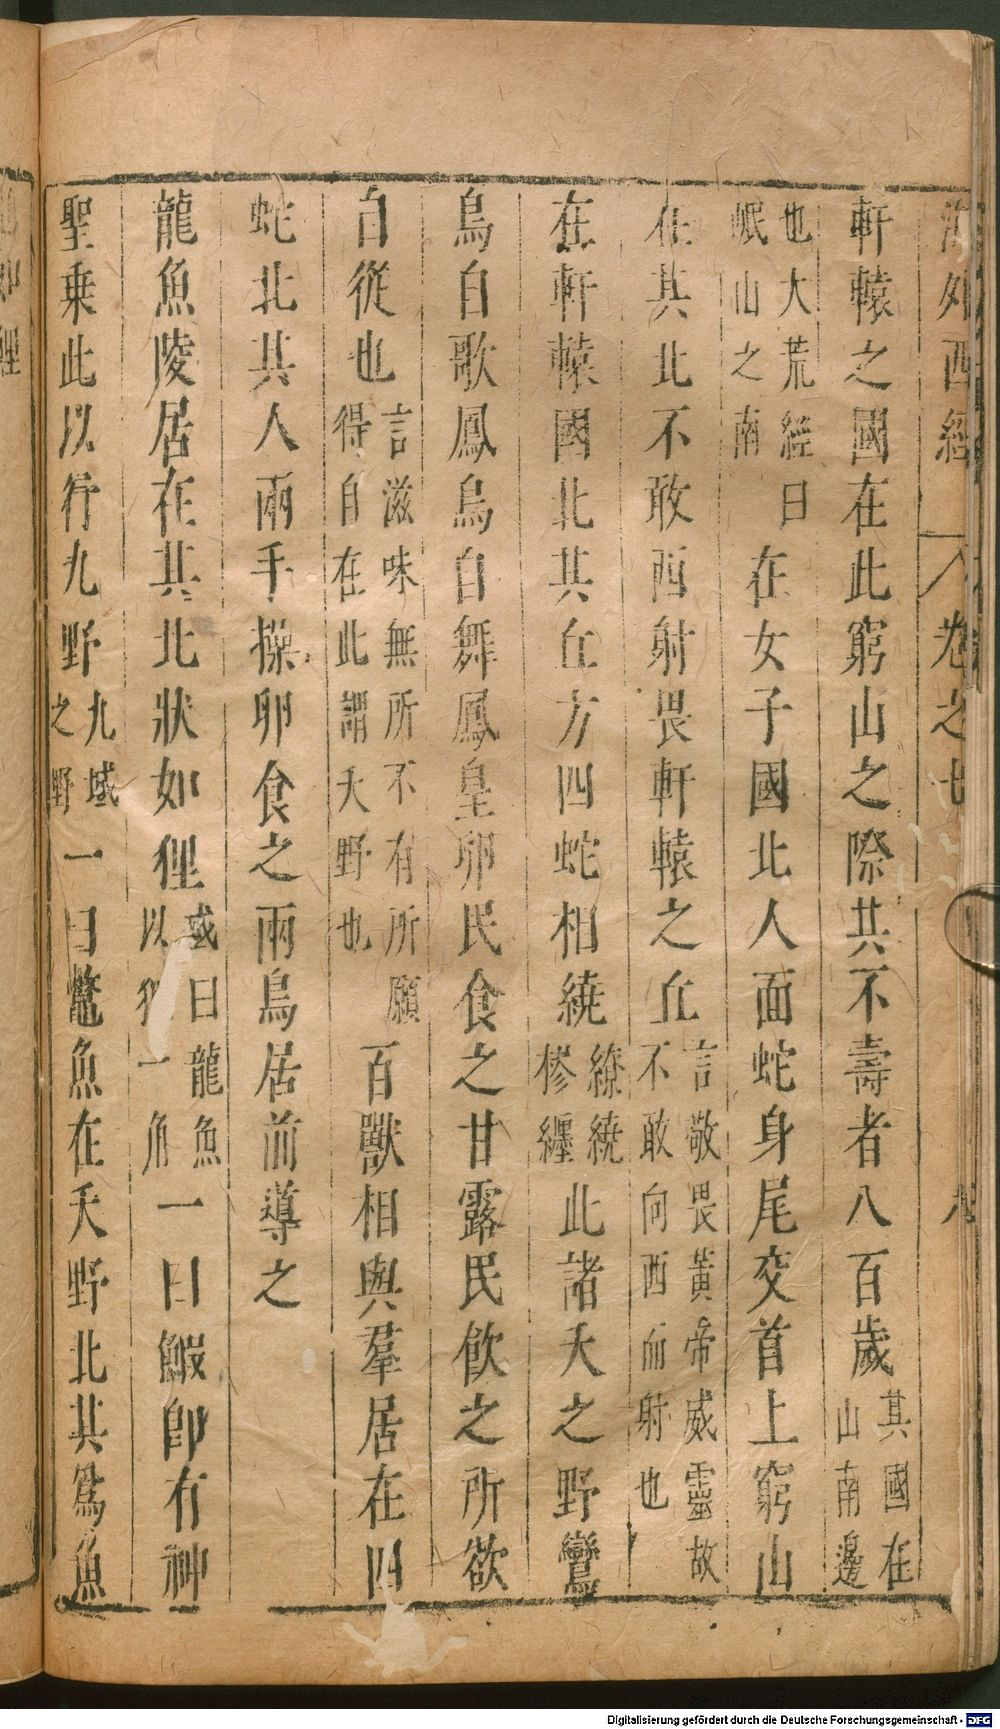 海外西經 卷之七 八
軒轅之國在此窮山之際其不壽者八百歲其國在山南邊
也大荒經曰岷山之南在女子國北人面蛇身尾交首上窮山
在其北不敢西射畏軒轅之丘言敬畏黃帝威靈故不敢向西而射也
在軒轅國北其丘方四蛇相繞繚繞樛纏此諸夭之野鸞
鳥自歌鳳鳥自舞鳳皇卵民食之甘露民飲之所欲
自從也言滋味無所不有所願得自在此謂夭野也百獸相與羣居在四
蛇北其人兩手操卵食之兩鳥居前導之
龍魚陵居在其北狀如狸或曰龍魚以狸一角一曰鰕即有神
聖乗此以行九野九域之野一曰鱉魚在夭野北其爲魚
Digitalisierung gefördert durch die Deutsche Forschungsgemeinschaft - DFG